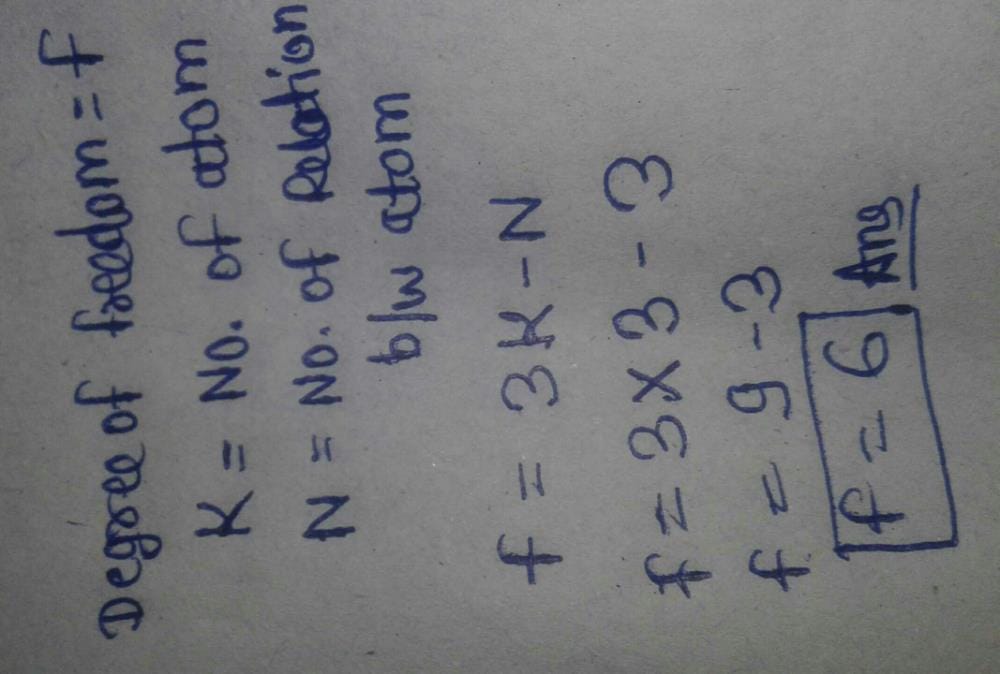 Degree of freedom = f
K = No. of atom
N = No. of Relation
b/w atom
f = 3K - N
f = 3 x 3 - 3
f = 9 - 3
f = 6 Ans